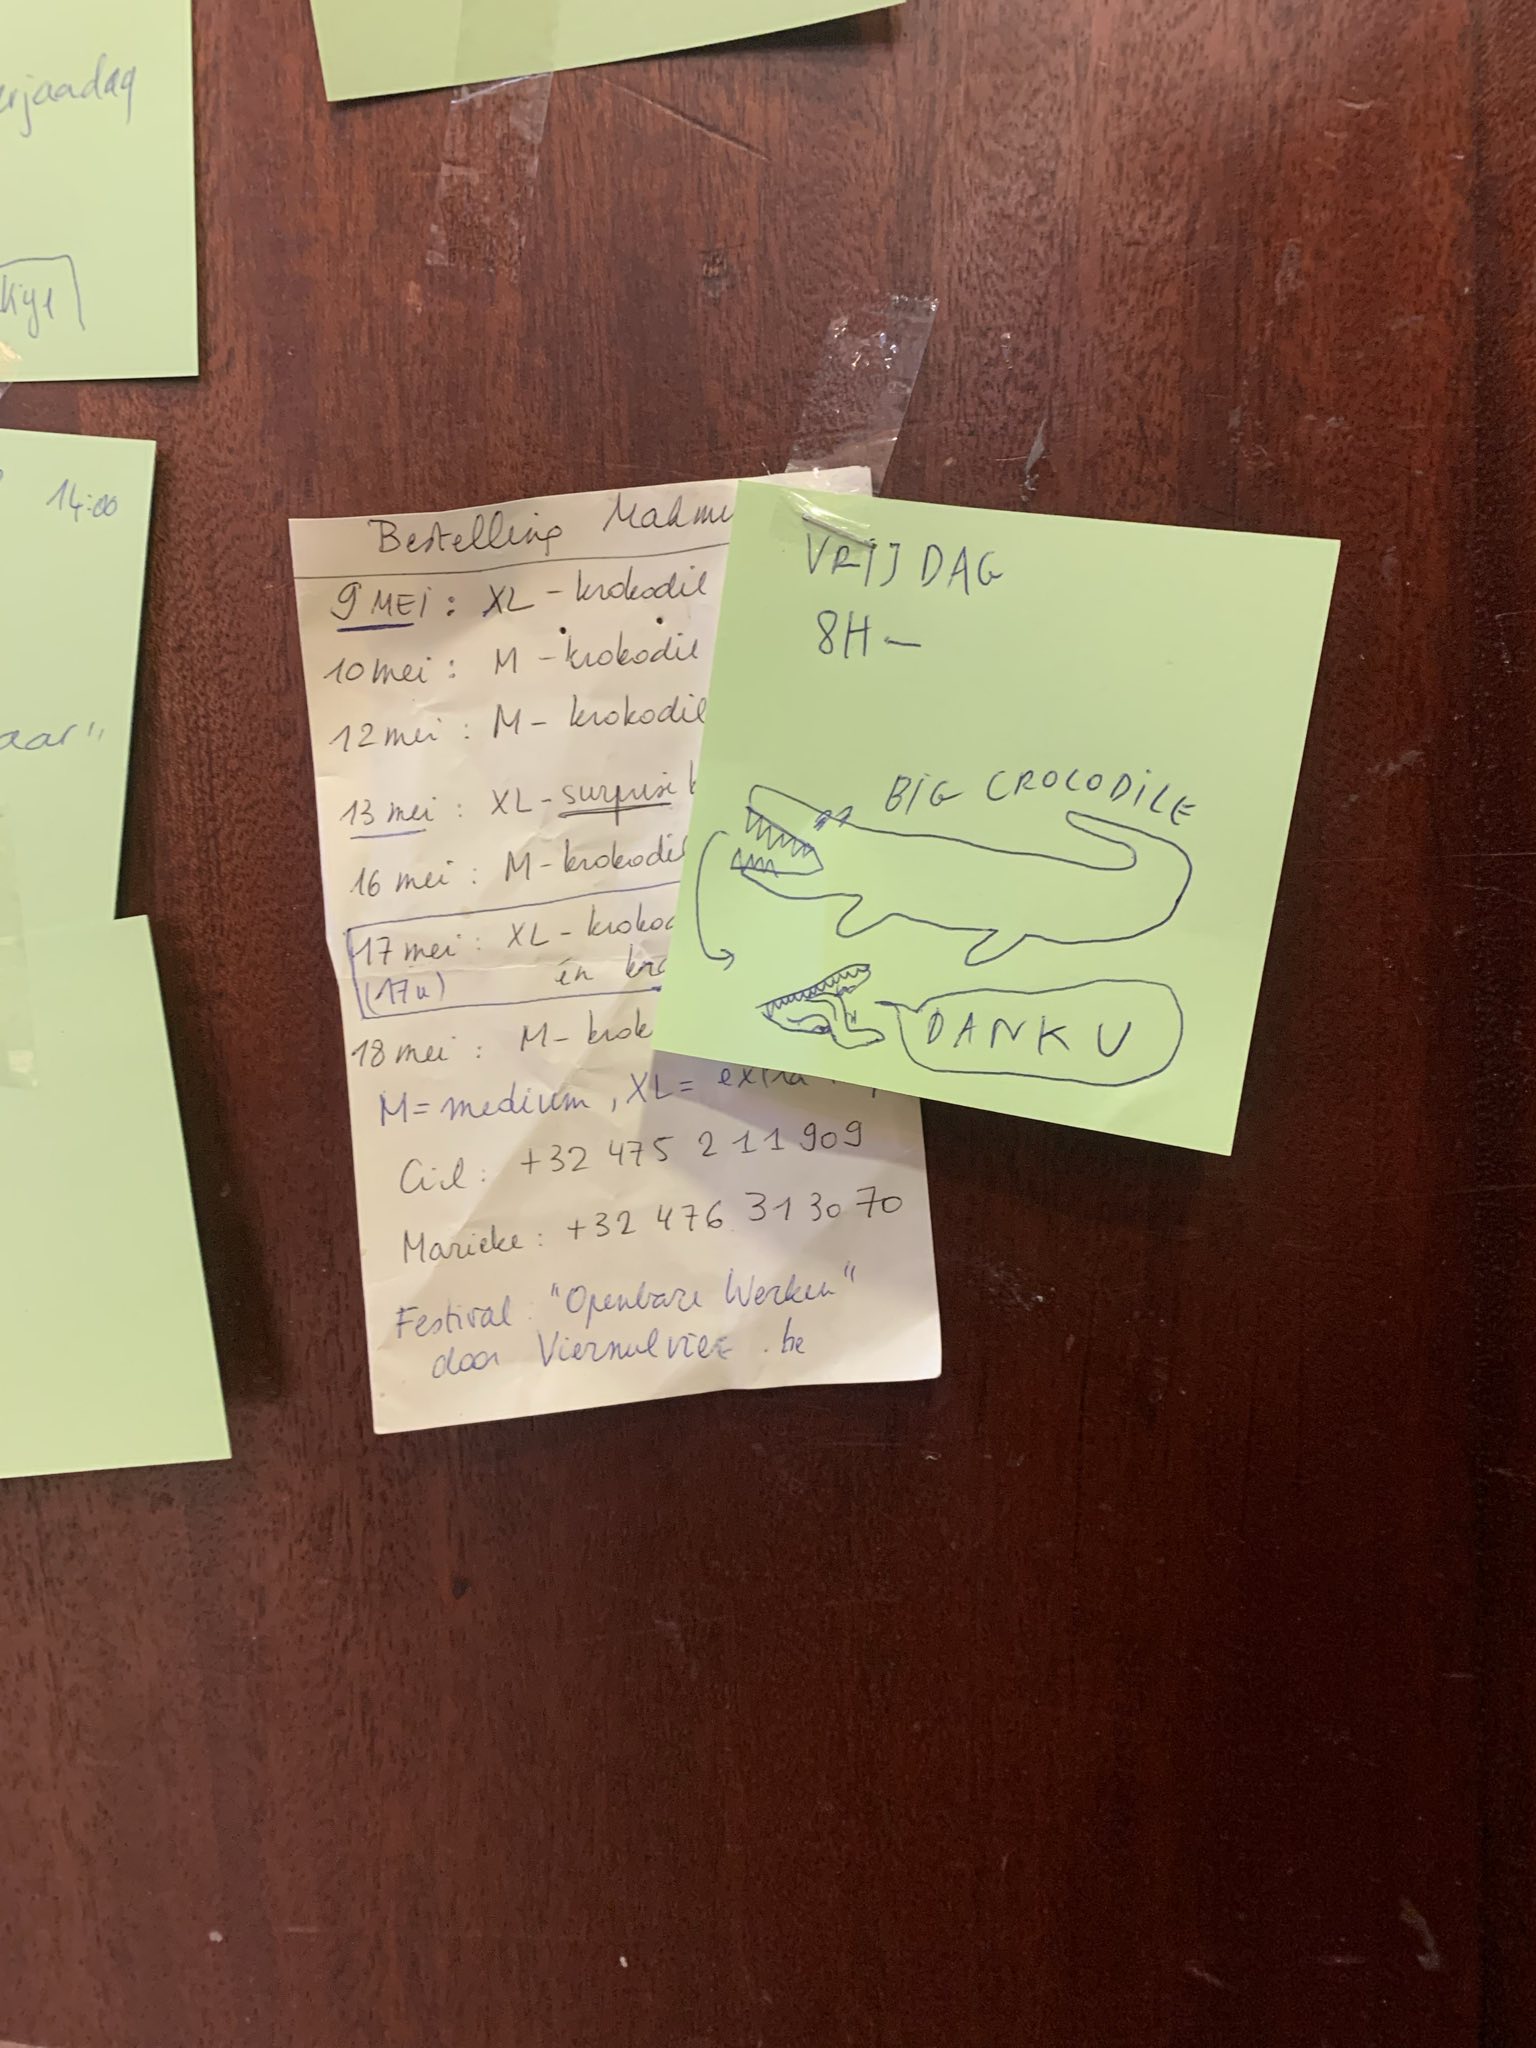 erjaadag
kije
14:00
aar"
Bestelling Mahmu
9 MEI : XL - krokodil
10 mei : M - krokodil
12 mei : M - krokodil
13 mei : XL - surprise k
16 mei : M - krokodil
17 mei : XL - kroko
(17u) én kro
18 mei : M - krok
M = medium, XL = extra
Ciel : +32 475 2 11 909
Marieke : +32 476 31 30 70
Festival : "Openbare Werken"
door Viernulvier.be
VRIJDAG
8H -
BIG CROCODILE
DANK U